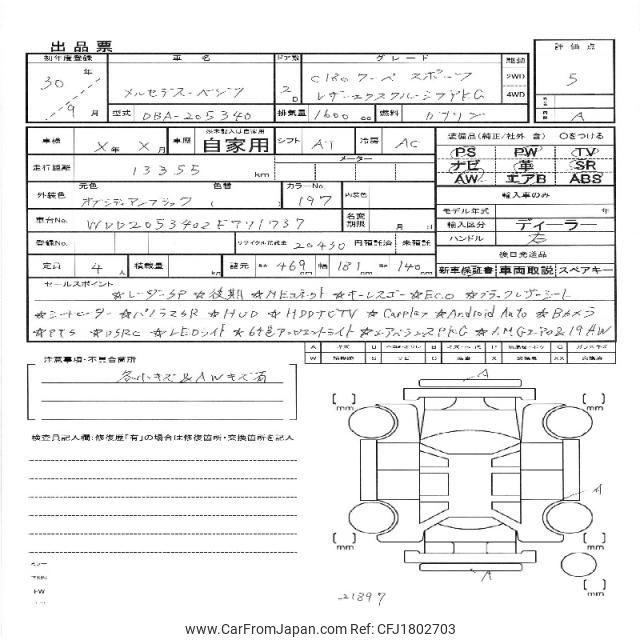 出品票
初年度登録 車名 ドア数 グレード 駆動 評価点
30年 メルセデス・ベンツ 2D C180クーペ スポーツ 2WD 5
9月 レザーエクスクルーシブPKG 4WD
型式 DBA-205340 排気量 1600 燃料 ガソリン A
車検 X年 X月 車歴 未記入は自家用 自家用 シフト AT 冷房 AC 装備品(純正/社外 含) Oをつける
走行距離 13355 km メーター PS PW TV
ナビ 革 SR
AW エアB ABS
外装色 元色 オブシディアンブラック 色替 ( カラーNo. 197 内装色 輸入車のみ
モデル年式 年
車台No. WDD2053402F 名変期限 月 日 輸入区分 ディーラー
登録No. リサイクル預託金 20430 円預託済 未預託 ハンドル 右
定員 4人 積載量 kg 諸元 469 幅 181 140 後日発送品
新車保証書 車両取説 スペアキー
セールスポイント
☆レーダーSP ☆後期 ☆MEコネクト ☆キーレスゴー ☆ECO ☆ブラックレザーシート
☆シートヒーター ☆パノラマSR ☆HUD ☆HDDナビTV ☆Carplay ☆Android Auto ☆Bカメラ
☆PTS ☆DSRC ☆LEDライト ☆64色アンビエントライト ☆エアバランスPKG ☆AMGエアロ&19AW
注意事項・不具合箇所
各小キズ&AWキズ有
検査員記入欄:修復歴「有」の場合は修復箇所・交換箇所を記入
A
[ ] mm [ ] mm
A
[ ] mm [ ] mm
A
[ ] mm
21897
CarFromJapan
© CarFromJapan Ref: CFJ1802703